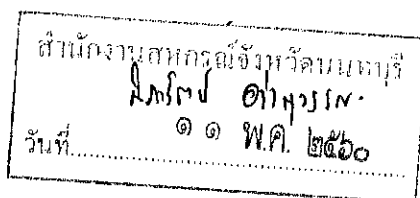 สำนักงานสหกรณ์จังหวัดนนทบุรี
๑๑ พ.ค. ๒๕๖๐
วันที่